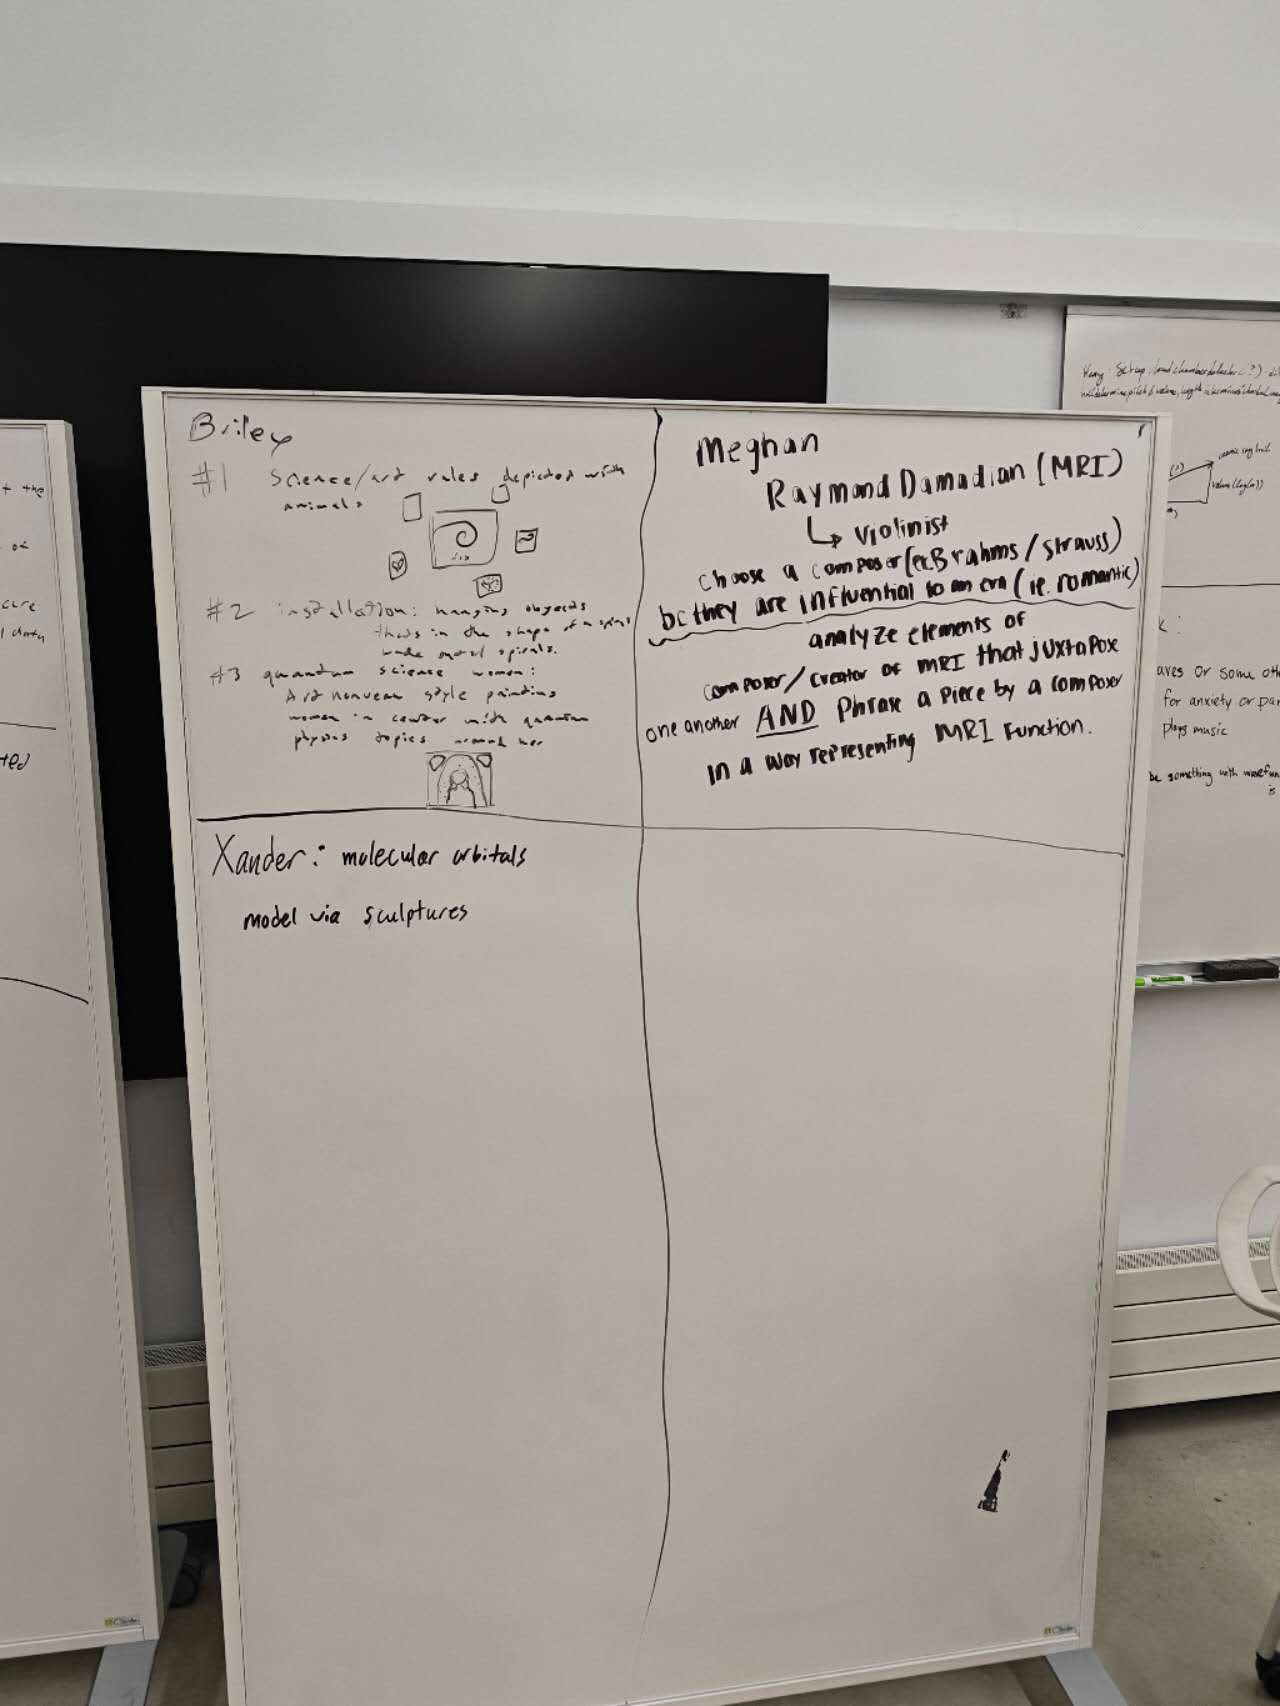 Briley
#1 Science/art rules depicted with
animals
#2 installation: hanging objects
thats in the shape of a spiral
made out of spirals.
#3 quantum science women:
Art nouveau style painting
women in center with quantum
physics topics around her
Meghan
Raymond Damadian (MRI)
↳ violinist
choose a composer (ex. Brahms/Strauss)
bc they are influential to an era (ie. romantic)
analyze elements of
composer/creator of MRI that juxtapose
one another AND Phrase a piece by a composer
in a way representing MRI function.
Xander: molecular orbitals
model via sculptures
the
of
ted
aves or some
for anxiety or
plays music
be something with
is